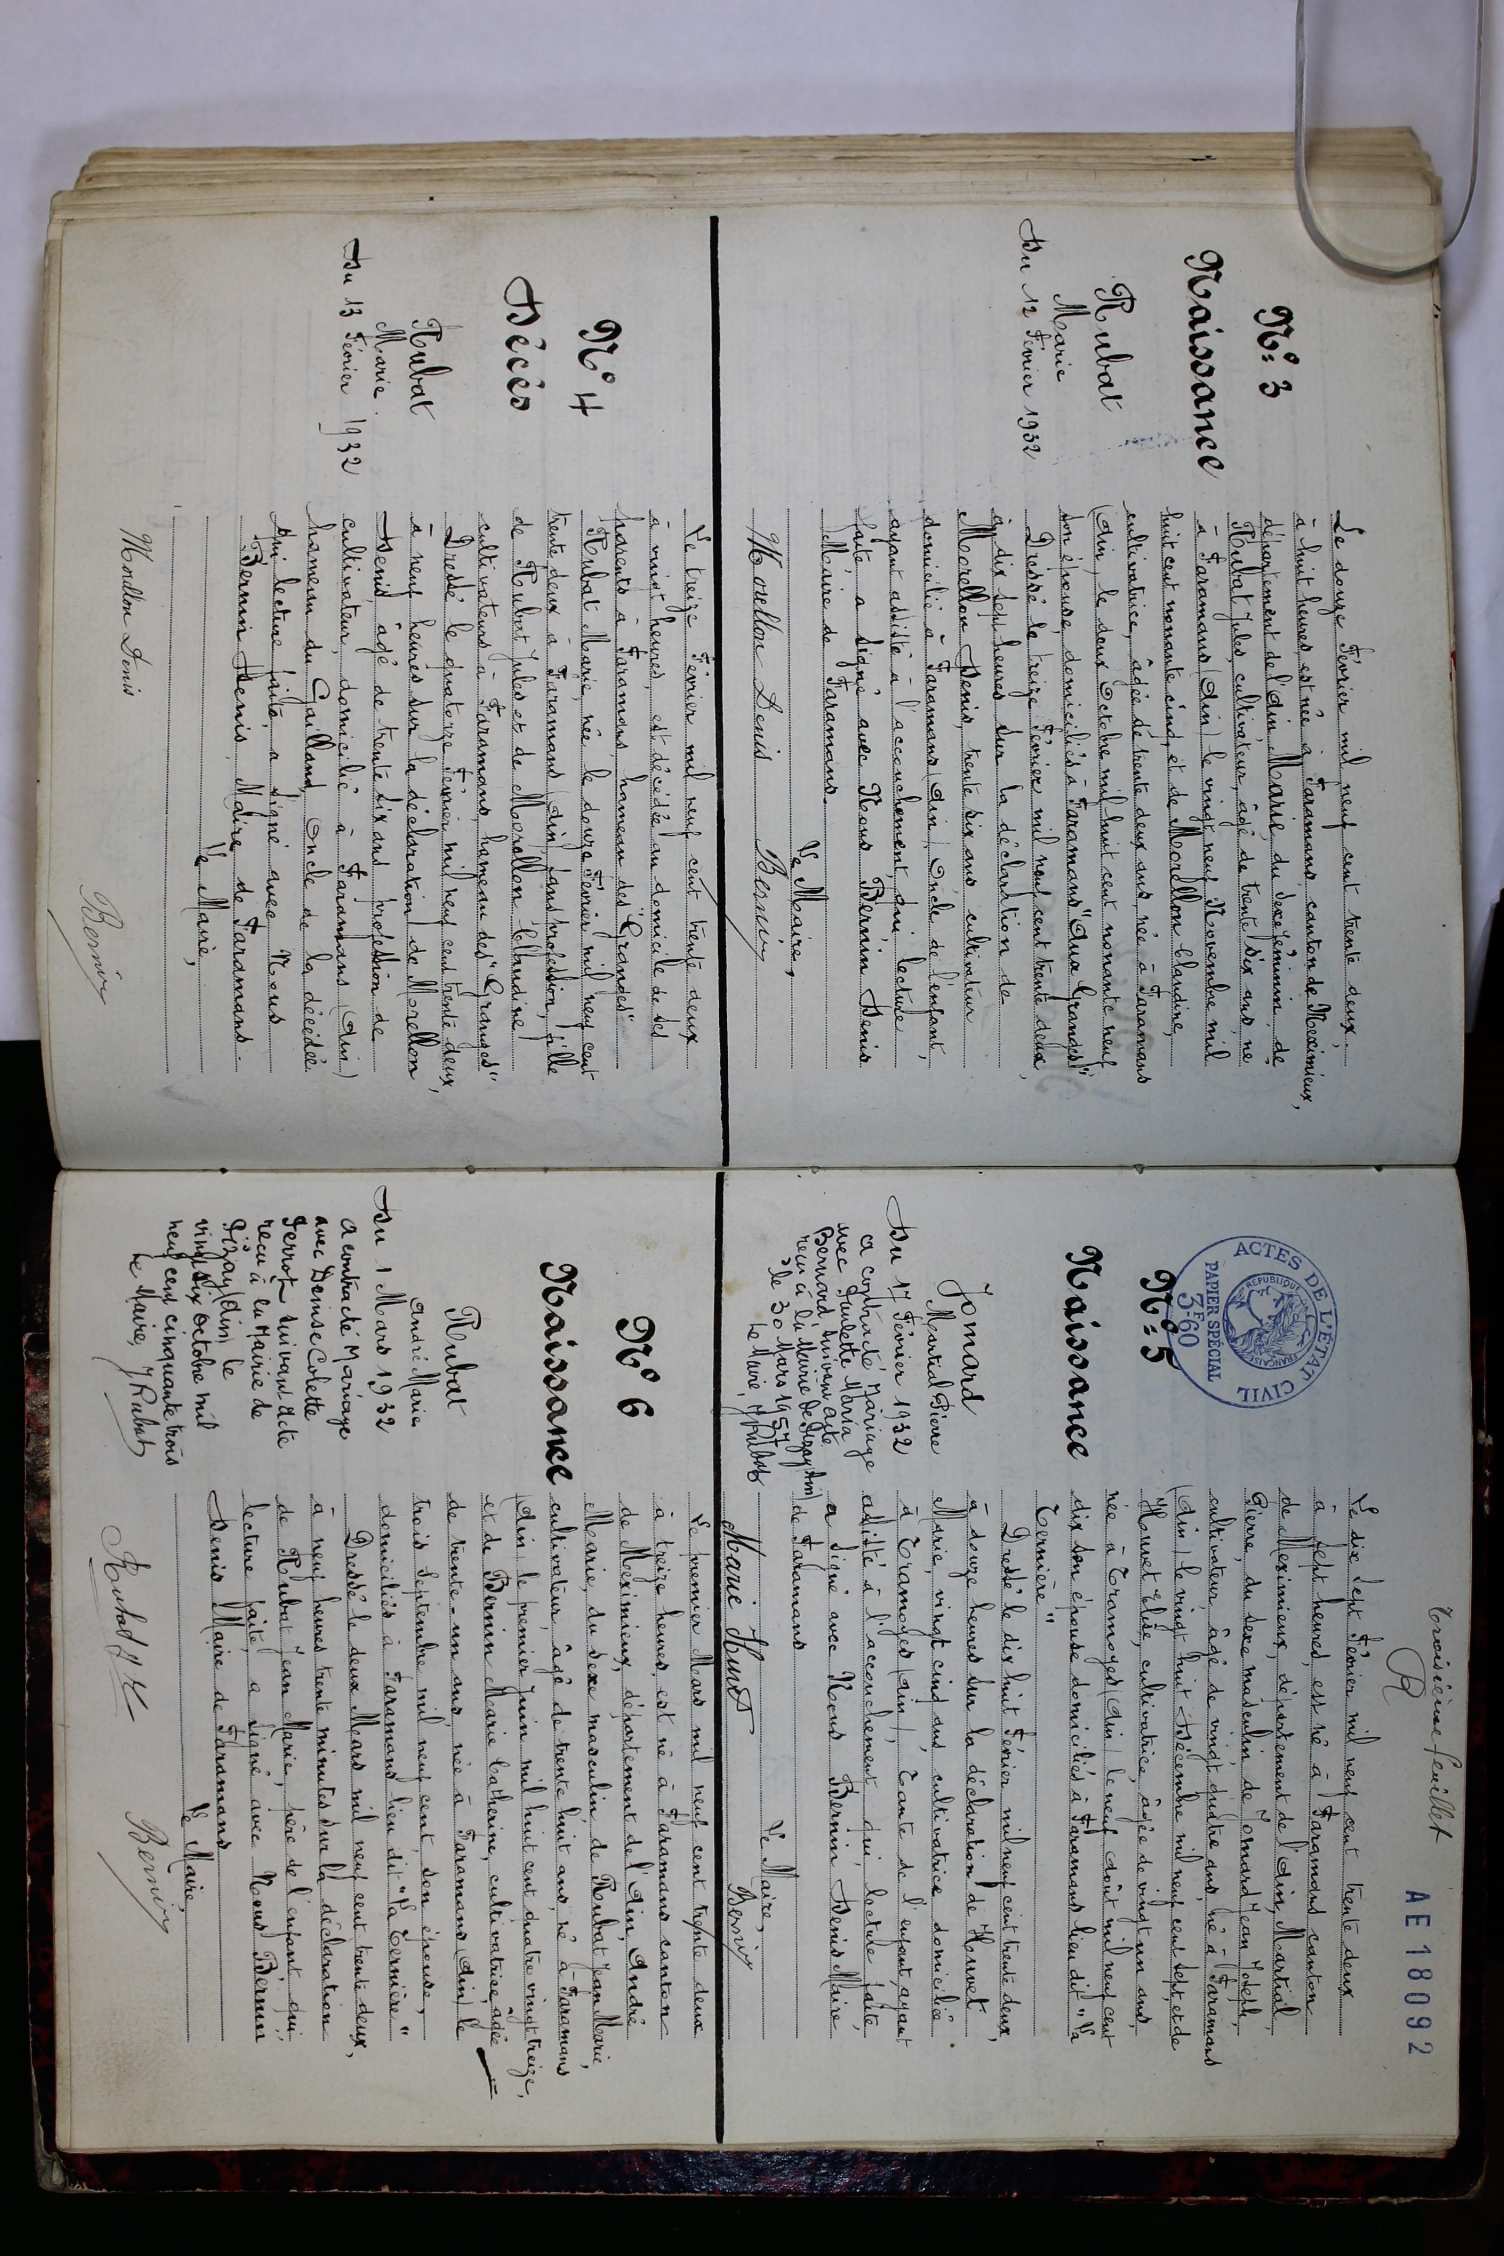 N° 3
Naissance
Rubat
Marie
Du 12 Février 1932
Le douze Février mil neuf cent trente deux,
à huit heures, est née à Faramans canton de Meximieux,
département de l'Ain, Marie, du sexe féminin, de
Rubat Jules, cultivateur, âgé de trente six ans, né
à Faramans (Ain) le vingt neuf Novembre mil
huit cent nonante cinq, et de Morellon Claudine,
cultivatrice, âgée de trente deux ans, née à Faramans
(Ain) le deux Octobre mil huit cent nonante neuf
son épouse, domiciliés à Faramans "Aux Granges"
Dressé le treize Février mil neuf cent trente deux,
à dix sept heures sur la déclaration de
Morellon Denis, trente six ans cultivateur
domicilié à Faramans (Ain), Oncle de l'enfant,
ayant assisté à l'accouchement, qui, lecture
faite, a signé avec Nous Bernin Denis
Maire de Faramans.
Le Maire,
Morellon Denis Bernin
N° 4
Décès
Rubat
Marie
Du 13 Février 1932
Le treize Février mil neuf cent trente deux
à vingt heures, est décédée au domicile de ses
parents à Faramans, hameau des "Granges"
Rubat Marie, née le douze Février mil neuf cent
trente deux à Faramans (Ain) sans profession, fille
de Rubat Jules et de Morellon Claudine
cultivateurs à Faramans, hameau des "Granges"
Dressé le quatorze Février mil neuf cent trente deux,
à neuf heures sur la déclaration de Morellon
Denis âgé de trente six ans profession de
cultivateur, domicilié à Faramans (Ain)
hameau du Gaillant, Oncle de la décédée
qui, lecture faite, a signé avec Nous
Bernin Denis, Maire, de Faramans.
Le Maire,
Morellon Denis Bernin
Troisième feuillet
AE 18092
ACTES DE L'ÉTAT CIVIL
RÉPUBLIQUE FRANÇAISE
PAPIER SPÉCIAL
3F60
N° 5
Naissance
Jomard
Martial Pierre
Du 17 Février 1932
a contracté Mariage
avec Paulette Maria
Bernard, suivant acte
reçu à la Mairie de Pizay (Ain)
le 30 Mars 1957
Le Maire, J Rubat
Le dix sept Février mil neuf cent trente deux
à sept heures, est né à Faramans canton
de Meximieux, département de l'Ain, Martial,
Pierre, du sexe masculin, de Jomard Jean Joseph,
cultivateur, âgé de vingt quatre ans, né à Faramans
(Ain) le vingt huit Décembre mil neuf cent sept et de
Huvet Elise, cultivatrice, âgée de vingt un ans,
née à Tramoyes (Ain) le neuf Août mil neuf cent
dix son épouse domiciliés à Faramans lieu dit "La
Ternière"
Dressé le dix huit Février mil neuf cent trente deux,
à douze heures sur la déclaration de Huvet
Marie, vingt cinq ans, cultivatrice domiciliée
à Tramoyes (Ain), Tante de l'enfant, ayant
assisté à l'accouchement qui, lecture faite,
a signé avec Nous Bernin Denis Maire
de Faramans
Le Maire,
Marie Huvet Bernin
N° 6
Naissance
Rubat
André Marie
Du 1 Mars 1932
a contracté Mariage
avec Denise Colette
Perrot suivant Acte
reçu à la Mairie de
Pizay (Ain) le
vingt six octobre mil
neuf cent cinquante trois
Le Maire, J Rubat
Le premier Mars mil neuf cent trente deux
à treize heures, est né à Faramans canton
de Meximieux, département de l'Ain, André
Marie, du sexe masculin de Rubat Jean Marie,
cultivateur, âgé de trente huit ans, né à Faramans
(Ain) le premier Juin mil huit cent quatre vingt treize,
et de Bernin Marie Catherine, cultivatrice, âgée
de trente-un ans, née à Faramans (Ain) le
trois Septembre mil neuf cent, son épouse,
domiciliés à Faramans lieu dit "La Ternière"
Dressé le deux Mars mil neuf cent trente deux,
à neuf heures trente minutes sur la déclaration
de Rubat Jean Marie, père de l'enfant qui,
lecture faite, a signé avec Nous Bernin
Denis Maire de Faramans
Le Maire,
Rubat J M Bernin